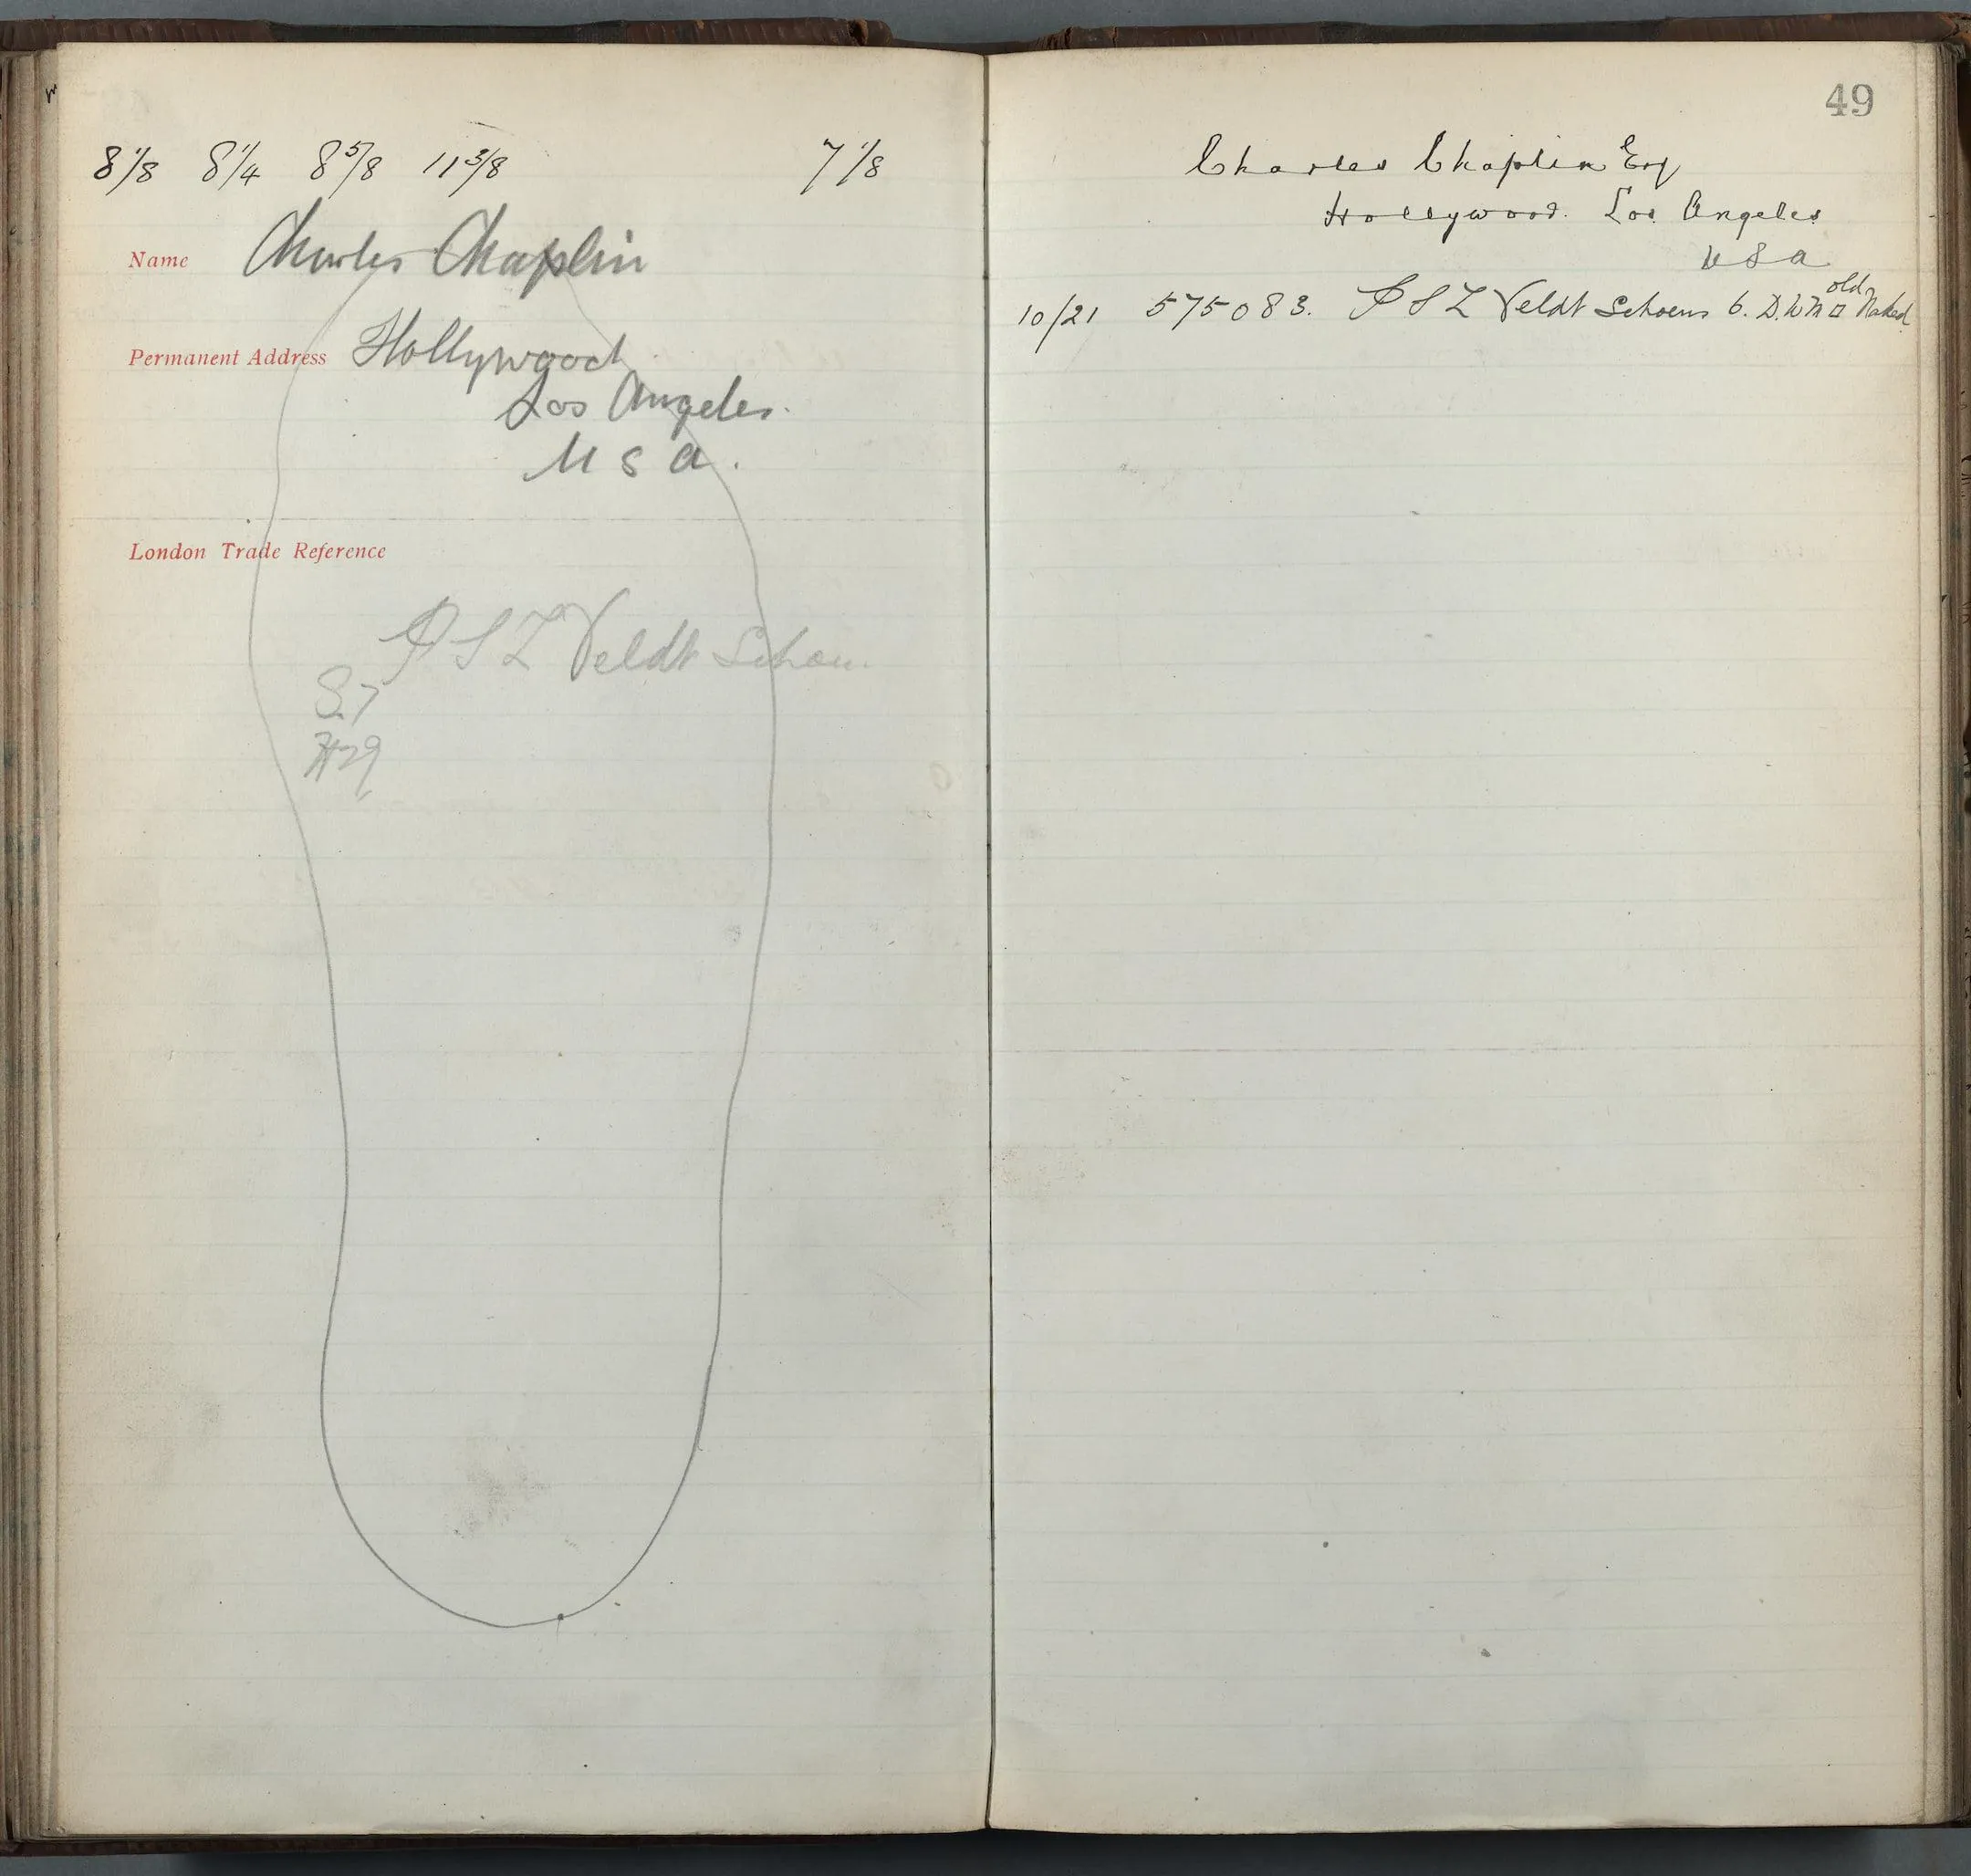 8 1/8 8 1/4 8 5/8 11 3/8 7 1/8
Name Charles Chaplin
Permanent Address Hollywood
Los Angeles.
U S A.
London Trade Reference
P S L Veldt Schoen
S.7
49
Charles Chaplin Esq
Hollywood. Los Angeles
U S A
10/21 575083. P S L Veldt Schoens 6. old Naked